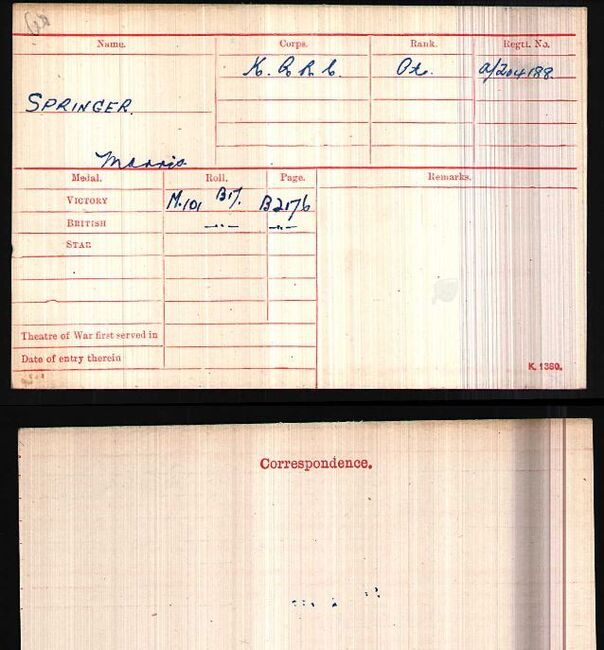 Name. Corps. Rank. Regtl. No.
K. R. R. C. Pte. A/204188
SPRINGER.
Morris
Medal. Roll. Page. Remarks.
VICTORY M.101 B17. B2176
BRITISH —"— —"—
STAR
Theatre of War first served in
Date of entry therein
K. 1380.
Correspondence.